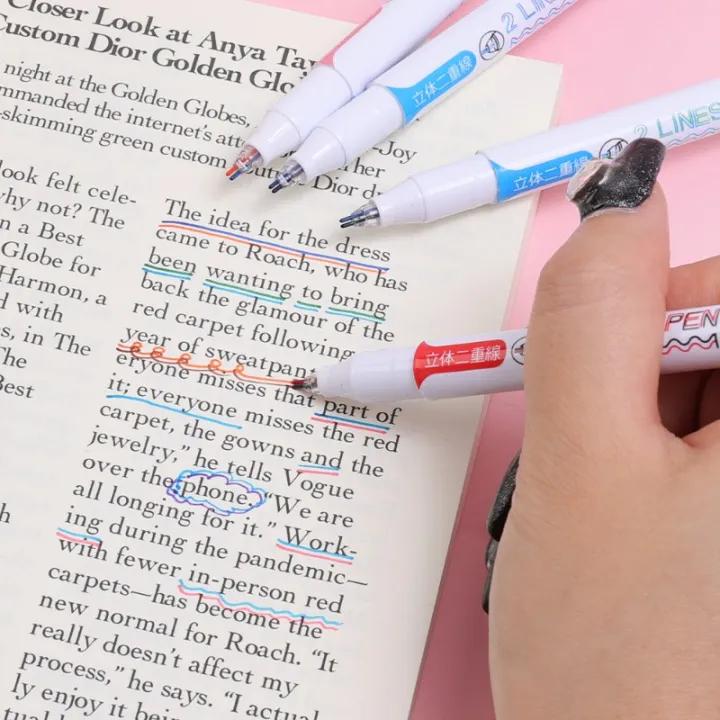 Closer Look at Anya Tay
Custom Dior Golden Glo
night at the Golden Globes,
mmanded the internet's att
-Joy
-skimming green custom
her
Dior
look felt cele-
why not? The
n a Best
Globe for
Harmon, a
d with
s, in The
The
Best
h
The idea for the dress
came to Roach, who has
been wanting to bring
back the glamour of the
red carpet following
year of sweatpan
eryone misses that part of
it; everyone misses the red
carpet, the gowns and the
jewelry," he tells Vogue
over the phone. "We are
all longing for it." Work-
ing during the pandemic—
with fewer in-person red
carpets—has become the
new normal for Roach. "It
really doesn't affect my
process," he says. "I actual
ly enjoy it bein
立体二重線
2 LINES
立体二重線
2 LINES
立体二重線
PEN